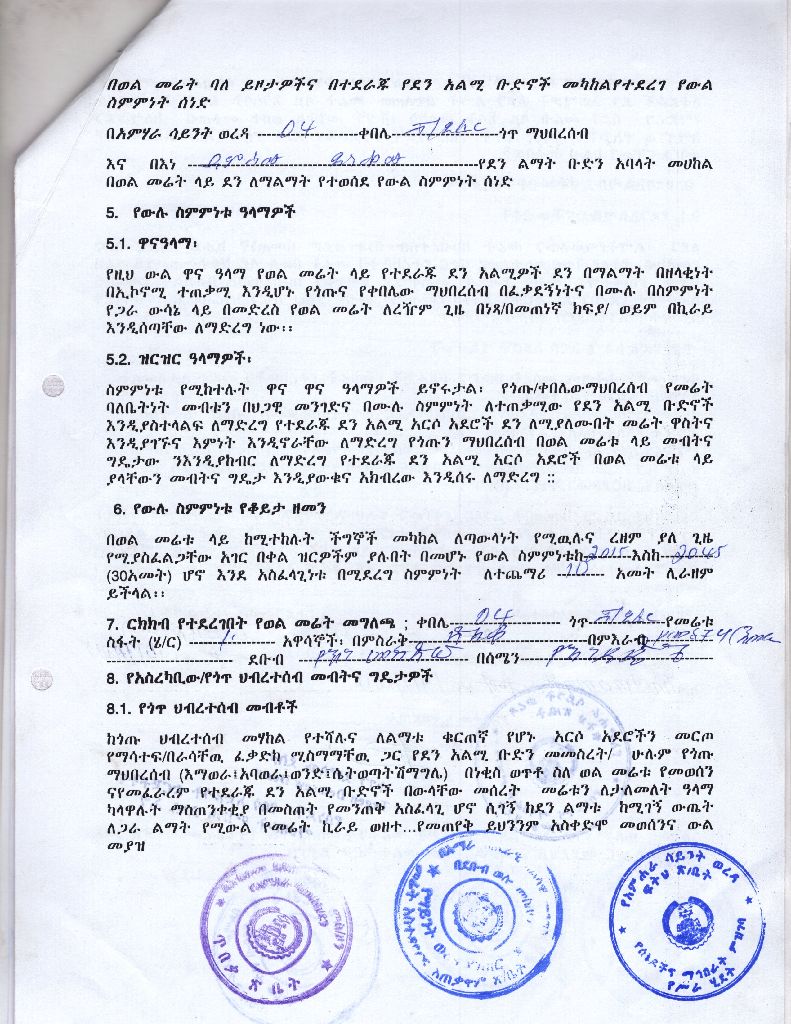 በወል መሬት ባለ ይዞታዎችና በተደራጁ የደን አልሚ ቡድኖች መካከልየተደረገ የውል
ስምምነት ሰነድ
በአምሃራ ሳይንት ወረዳ ------------04------------ቀበሌ ----------------ጎጥ ማህበረሰብ
እና በእነ ----------------------------------------የደን ልማት ቡድን አባላት መሀከል
በወል መሬት ላይ ደን ለማልማት የተወሰደ የውል ስምምነት ሰነድ
5. የውሉ ስምምነቱ ዓላማዎች
5.1. ዋናዓላማ፡
የዚህ ውል ዋና ዓላማ የወል መሬት ላይ የተደራጁ ደን አልሚዎች ደን በማልማት በዘላቂነት
በኢኮኖሚ ተጠቃሚ እንዲሆኑ የጎጡና የቀበሌው ማህበረሰብ በፈቃደኝነትና በሙሉ በስምምነት
የጋራ ውሳኔ ላይ በመድረስ የወል መሬት ለረዥም ጊዜ በነጻ/በመጠነኛ ክፍያ/ ወይም በኪራይ
እንዲሰጣቸው ለማድረግ ነው፡፡
5.2. ዝርዝር ዓላማዎች፡
ስምምነቱ የሚከተሉት ዋና ዋና ዓላማዎች ይኖሩታል፡ የጎጡ/ቀበሌውማህበረሰብ የመሬት
ባለቤትነት መብቱን በህጋዊ መንገድና በሙሉ ስምምነት ለተጠቃሚው የደን አልሚ ቡድኖች
እንዲያስተላልፍ ለማድረግ የተደራጁ ደን አልሚ አርሶ አደሮች ደን ለሚያለሙበት መሬት ዋስትና
እንዲያገኙና እምነት እንዲኖራቸው ለማድረግ የጎጡን ማህበረሰብ በወል መሬቱ ላይ መብትና
ግዴታው ንእንዲያከብር ለማድረግ የተደራጁ ደን አልሚ አርሶ አደሮች በወል መሬቱ ላይ
ያላቸውን መብትና ግዴታ እንዲያውቁና አክብረው እንዲሰሩ ለማድረግ ::
6. የውሉ ስምምነቱ የቆይታ ዘመን
በወል መሬቱ ላይ ከሚተከሉት ችግኞች መካከል ለጣውላነት የሚዉሉና ረዘም ያለ ጊዜ
የሚያስፈልጋቸው አገር በቀል ዝርዎችም ያሉበት በመሆኑ የውል ስምምነቱከ-2015-እስከ-2045
(30አመት) ሆኖ እንደ አስፈላጊነቱ በሚደረግ ስምምነት ለተጨማሪ --10-- አመት ሊራዘም
ይችላል፡፡
7. ርክክብ የተደረገበት የወል መሬት መግለጫ ; ቀበሌ----04---- ጎጥ--------የመሬቱ
ስፋት (ሄ/ር) ------------ አዋሳኞች፡ በምስራቅ----------------በምእራብ
---------------- ደቡብ ---------------- በሰሜን----------------
8. የአስረካቢው/የጎጥ ህብረተሰብ መብትና ግዴታዎች
8.1. የጎጥ ህብረተሰብ መብቶች
ከጎጡ ህብረተሰብ መሃከል የተሻሉና ለልማቱ ቁርጠኛ የሆኑ አርሶ አደሮችን መርጦ
የማሳተፍ/በራሳቸዉ ፈቃድከ ሚስማማቸዉ ጋር የደን አልሚ ቡድን መመስረት/ ሁሉም የጎጡ
ማህበረሰብ (እማወራ፤አባወራ፤ወንድ፤ሴትወጣትሽማግሌ) በነቂስ ወጥቶ ስለ ወል መሬቱ የመወሰን
ናየመፈራረም የተደራጁ ደን አልሚ ቡድኖች በውላቸው መሰረት መሬቱን ለታለመለት ዓላማ
ካላዋሉት ማስጠንቀቂያ በመስጠት የመንጠቅ አስፈላጊ ሆኖ ሲገኝ ከደን ልማቱ ከሚገኝ ውጤት
ለጋራ ልማት የሚውል የመሬት ኪራይ ወዘተ...የመጠየቅ ይህንንም አስቀድሞ መወሰንና ውል
መያዝ
ጥበቃ ጽ/ቤት
የአምሐራ ሳይንት ወረዳ
ፍትህ ጽ/ቤት
የሰነዶችና ማኅበራት ምዝገባ
የሥራ ሂደት